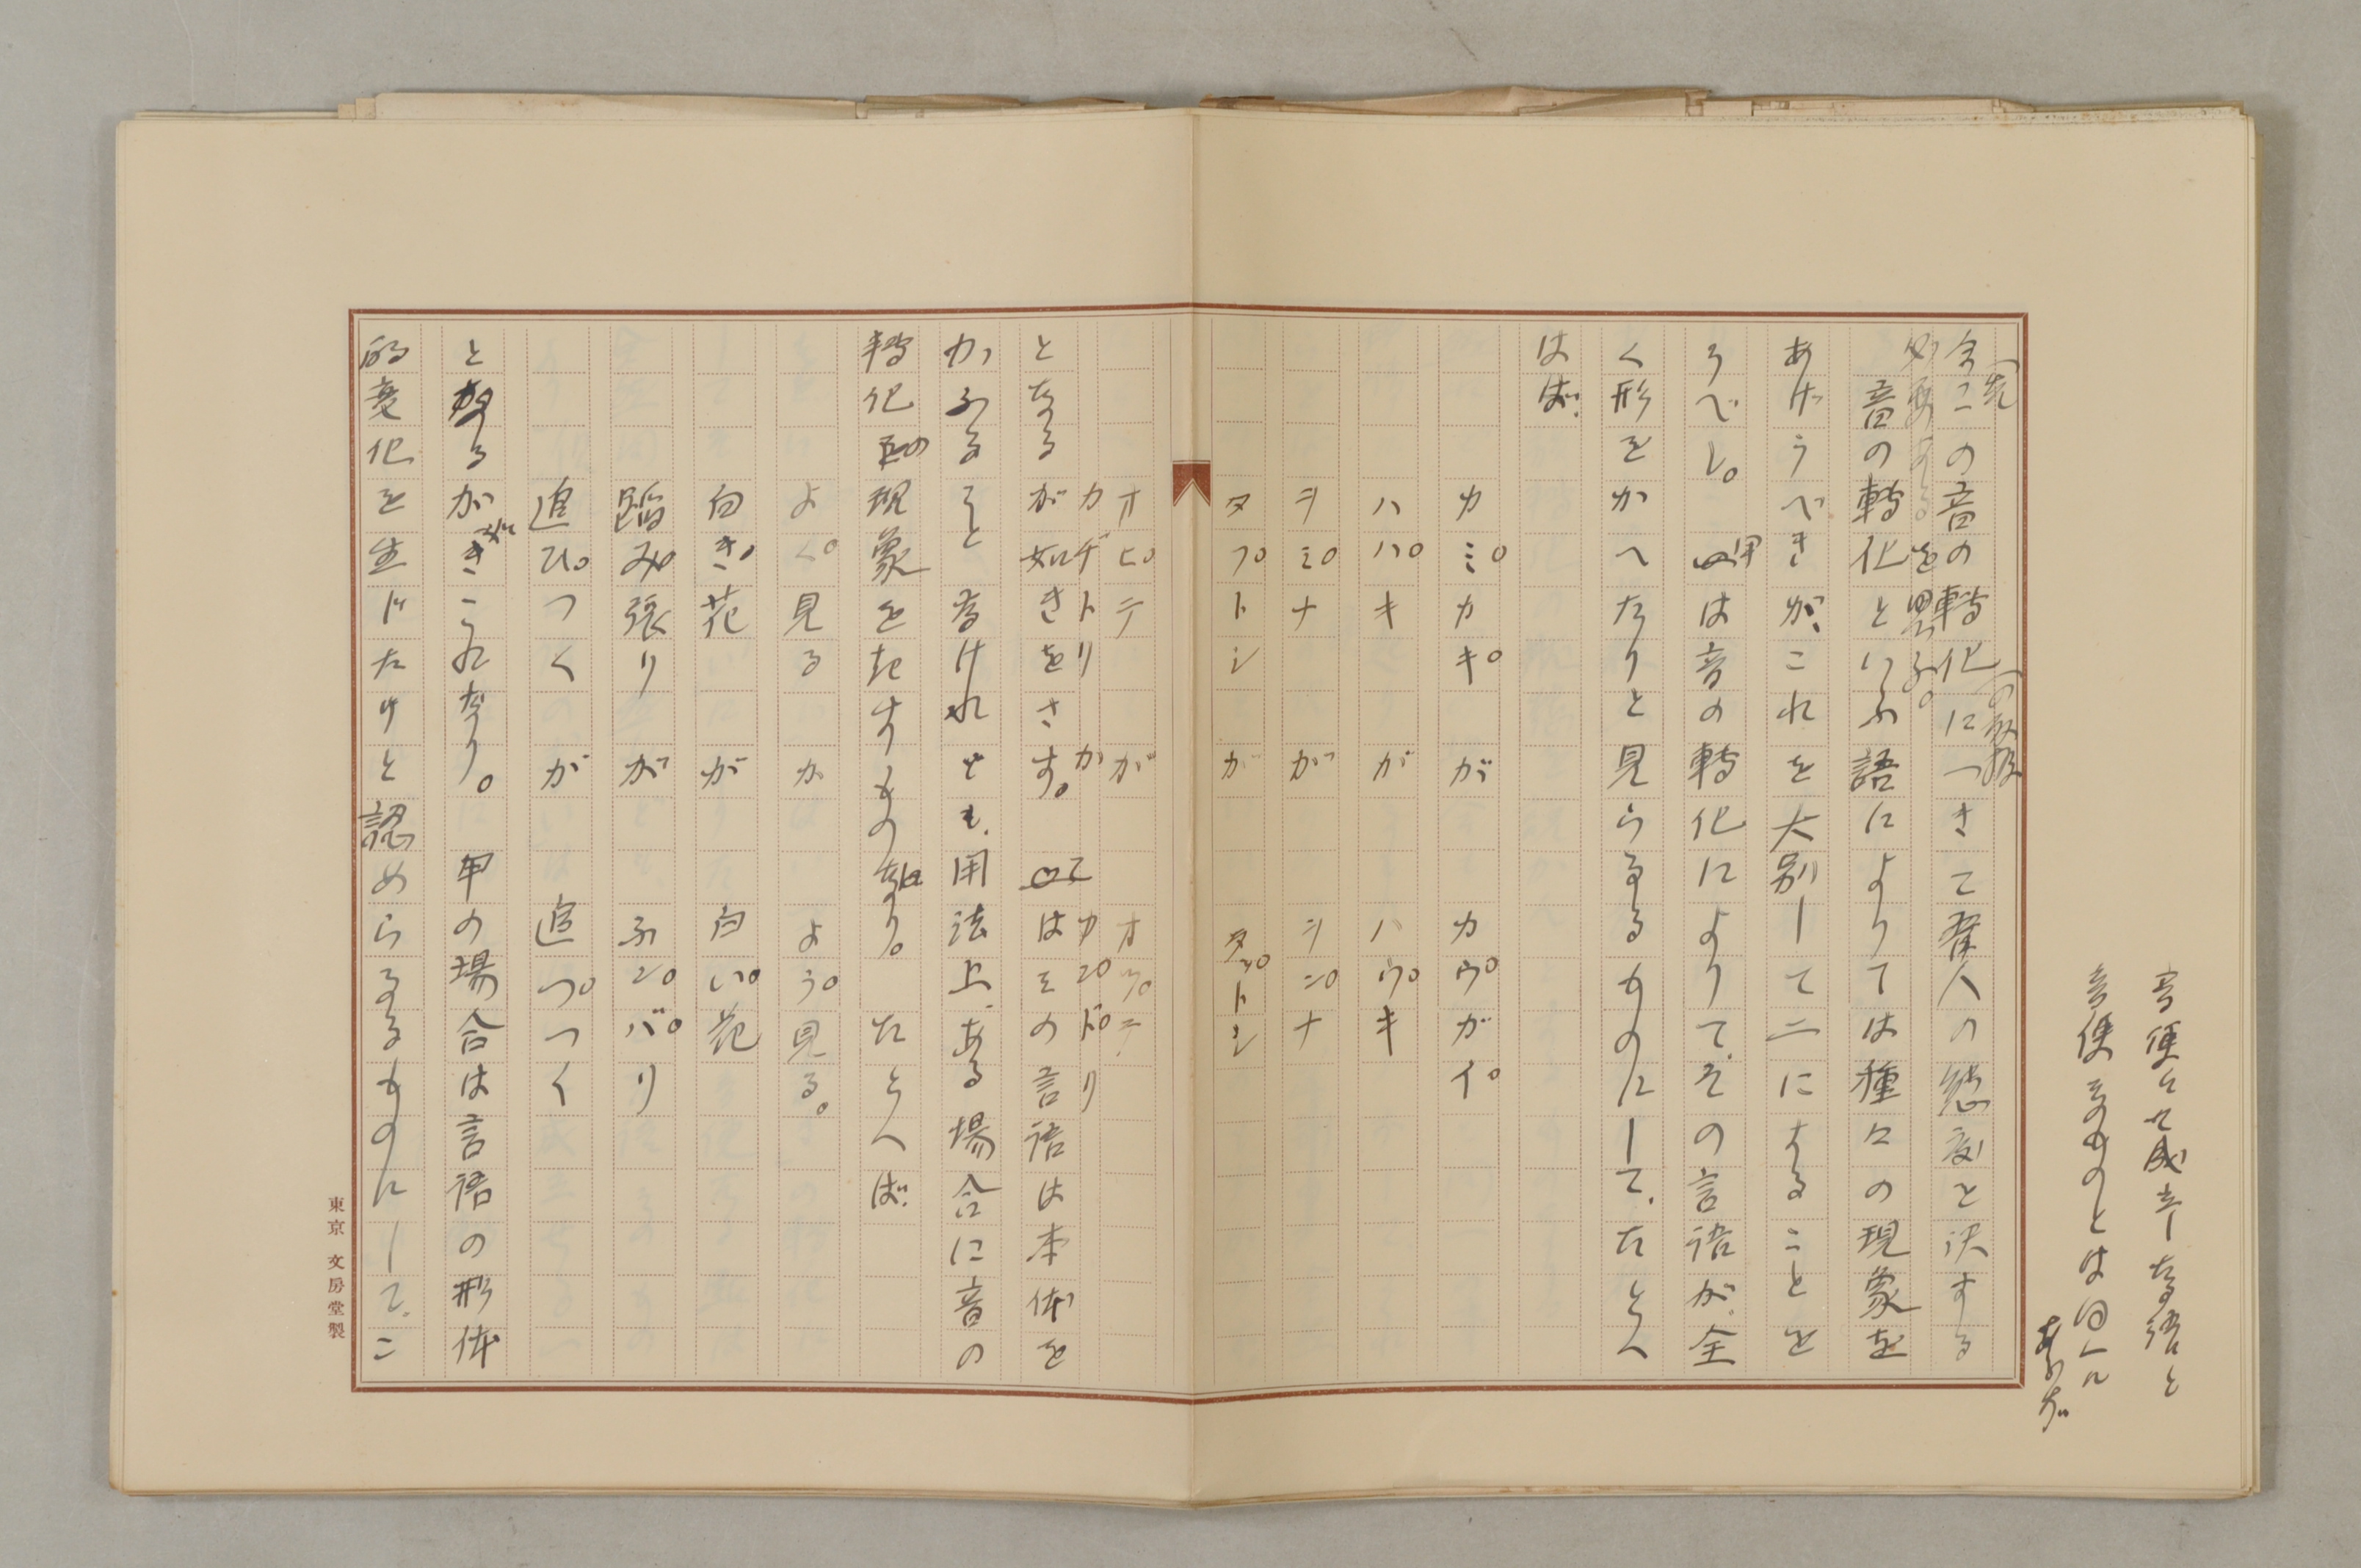 音便にて成立しなる語と
音便なるものとは同一に
あらず
今この音の轉化につきて吾人の態度を決する
必要あるを思ふ。
音の轉化といふ語によりては種々の現象を
あげうべきが、これを大別して二にすることを
うべし。甲は音の轉化によりて、その言語が、全
く形をかへたりと見らるるものにして、たとへ
ば、
カミカキ が カウガイ
ハハキ が ハウキ
ヲミナ が ヲンナ
タフトシ が タットシ
オヒテ が オウテ
カヂトリ が カンドリ
となるが如きをさす。乙はその言語は本体を
かふること無けれども、用法上、ある場合に音の
轉化の現象を起すものなり。たとへば、
よく見る が よう見る。
白き花 が 白い花
踏み張り が ふンバリ
追ひつく が 追っつく
となるがごときこれなり。甲の場合は言語の形体
的変化を生じたりと認めらるるものにして、こ
東京 文房堂製